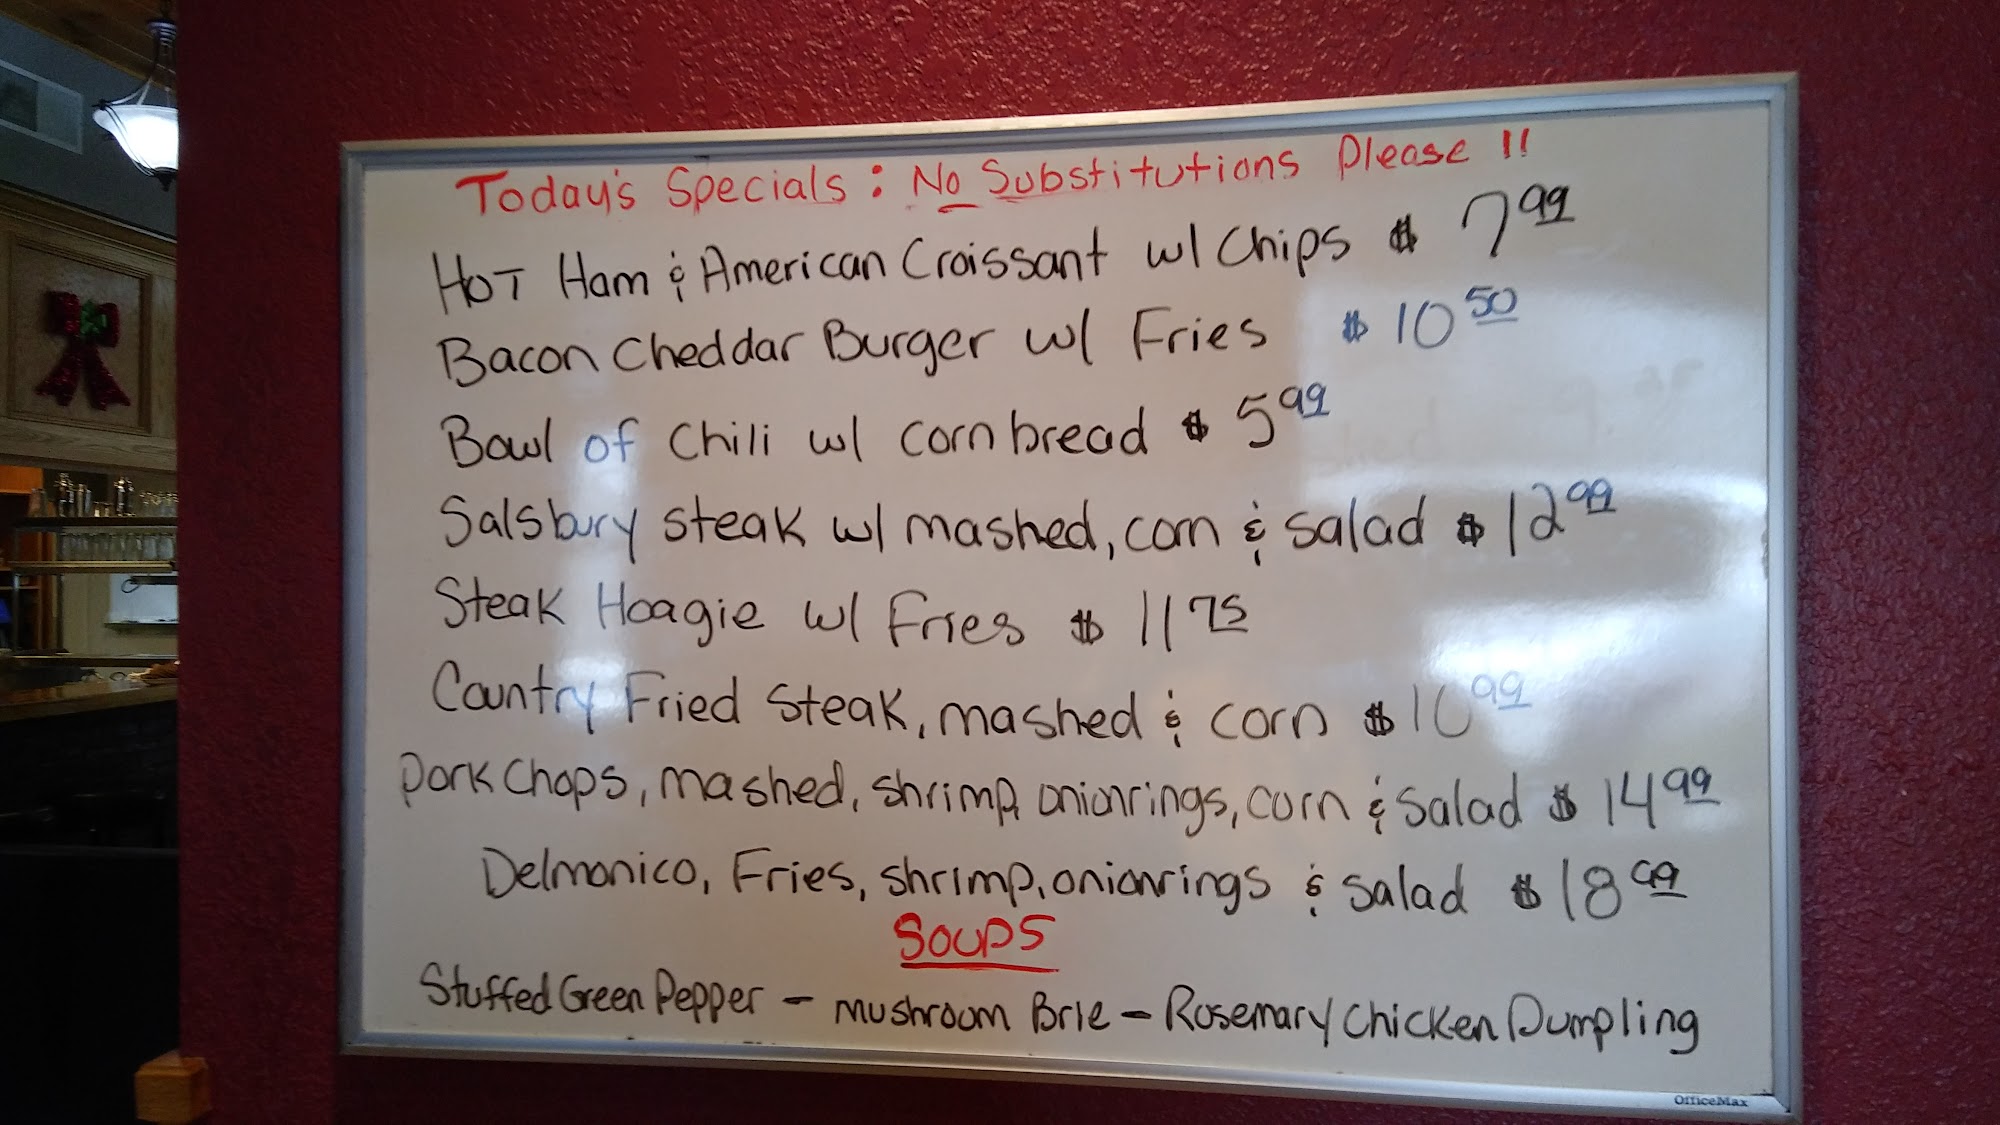 Today's Specials: No Substitutions Please !!
Hot Ham & American Croissant w/ Chips $ 7 99
Bacon Cheddar Burger w/ Fries $ 10 50
Bowl of Chili w/ cornbread $ 5 99
Salsbury steak w/ mashed, corn & salad $ 12 99
Steak Hoagie w/ Fries $ 11 75
Country Fried Steak, mashed & corn $ 10 99
Pork Chops, mashed, shrimp, onionrings, corn & salad $ 14 99
Delmonico, Fries, shrimp, onionrings & salad $ 18 99
SOUPS
Stuffed Green Pepper - Mushroom Brie - Rosemary Chicken Dumpling
OfficeMax